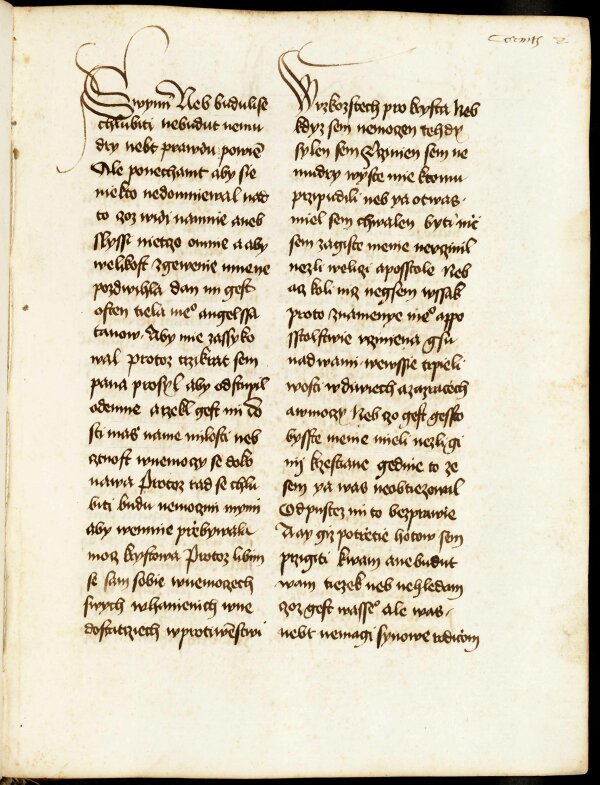 Corints 2
Swymi Neb budulise
chlubiti nebudut nemu
dry nebt prawdu powiē
Ale ponechamt aby sie
niekto nedomniewal nad
to zoz widi namnie aneb
Slyssi nietzo omnie a aby
welikost zgewenie mne ne
pozdwihla dan mi gest
osten tiela meº angel ssa
tanow Aby mie zassyko
wal Protoz trzikrat sem
pana prosyl aby odstupil
odemne a rzekl gest mi do
sti mas name milosti neb
ctnost wnemozy se doko
nawa Protoz rad se chlu
biti budu nemozmi mymi
aby wemnie przebywala
moz krystowa Protoz libim
se sam sobie wnemozech
swych whanienich wne
dostatziech wprotiwēstwi
Wuzkostech pro krysta Neb
kdyz sem nemozen tehdy
sylen sem Uczinien sem ne
mudry wyste mie ktomu
przypudili neb ya otwas
miel sem chwalen byti nic
sem zagiste menie neuczinil
nezli welizi aposstole Neb
acz koli niz negsem wssak
proto znamenye meº appo
sstolstwie uczinena gsu
nadwami wewssie trpieli
wosti wdiwiech azazraciech
awmozy Neb czo gest gessto
byste menie mieli nezli gi
nij krzestiane gedine to ze
sem ya was neobtiezowal
Odpustez mi to bezprawie
Aay giz potrzetie hotow sem
przigiti kwam anebudut
wam tiezek neb nehledam
zoz gest wasseº ale was
nebt nemagi synowe rodiczom